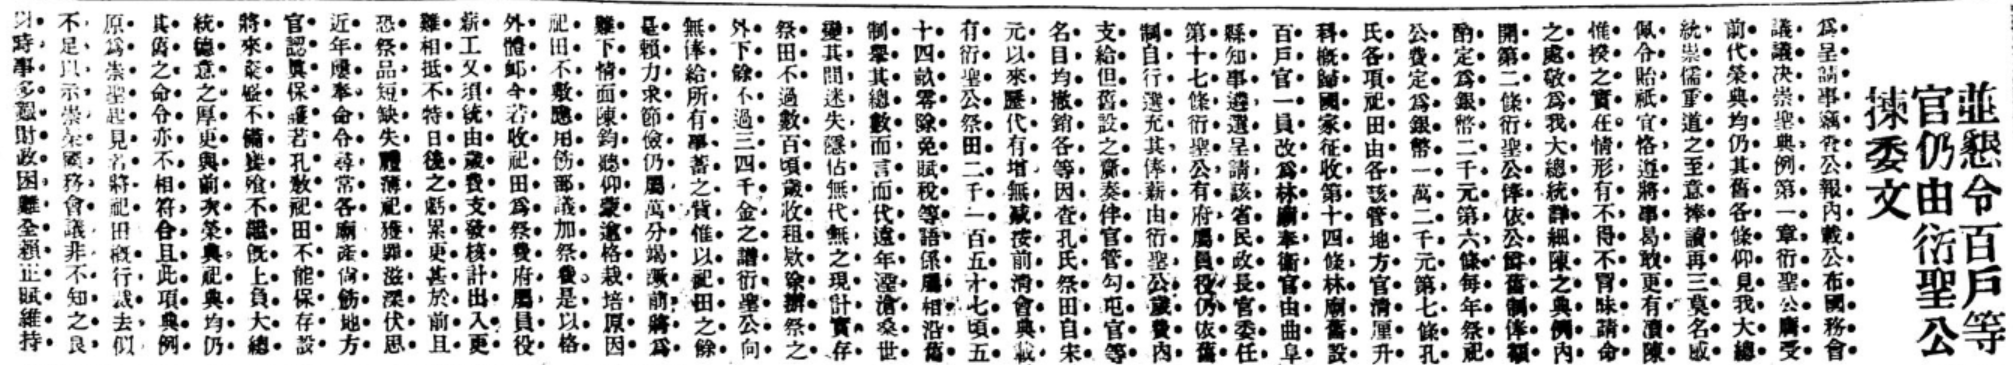 並懇令百戶等
官仍由衍聖公
揀委文
爲呈請事竊查公報內載公布國務會
議議决崇聖典例第一章衍聖公膺受
前代榮典均仍其舊各條仰見我大總
統崇儒重道之至意捧讀再三莫名感
佩令貽祇宜恪遵將事曷敢更有瀆陳
惟揆之實在情形有不得不冒昧請命
之處敬爲我大總統詳細陳之典例內
開第二條衍聖公俸依公爵舊制俸額
酌定爲銀幣二千元第六條每年祭祀
公費定爲銀幣一萬二千元第七條孔
氏各項祀田由各該管地方官清厘升
科槪歸國家征收第十四條林廟舊設
百戶官一員改爲林廟奉衛官由曲阜
縣知事遴選呈請該省民政長官委任
第十七條衍聖公有府屬員役仍依舊
制自行選充其俸薪由衍聖公歲費內
支給但舊設之齎奏伴官管勾屯官等
名目均撤銷各等因查孔氏祭田自宋
元以來歷代有增無減按前清會典載
有衍聖公祭田二千一百五十七頃五
十四畝零除免賦稅等語係屬相沿舊
制舉其總數而言而代遠年湮滄桑世
變其間迷失隱佔無代無之現計實存
祭田不過數百頃歲收租欵除辦祭之
外下餘不過三四千金之譜衍聖公向
無俸給所有事蓄之貲惟以祀田之餘
是賴力求節儉仍屬萬分竭蹶前將爲
難下情面陳鈞聽仰蒙逾格栽培原因
祀田不敷應用飭部議加祭費是以格
外體卹今若收祀田爲祭費府屬員役
薪工又須統由歲費支發核計出入更
難相抵不特日後之虧累更甚於前且
恐祭品短缺失禮薄祀獲罪滋深伏思
近年屢奉命令尋常各廟產尙飭地方
官認眞保護若孔敎祀田不能保存設
將來粢盛不備饔飧不繼旣上負大總
統德意之厚更與前次榮典祀典均仍
其舊之命令亦不相符合且此項典例
原爲崇聖起見若將祀田槪行裁去似
不足以示崇㤗國務會議非不知之良
以時事多艱財政困難全賴正賦維持